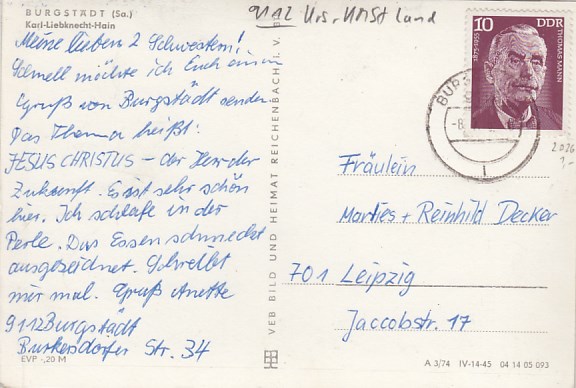 BURGSTÄDT (Sa.)
Karl-Liebknecht-Hain
Meine lieben 2 Schwestern!
Schnell möchte ich Euch einen
Gruß von Burgstädt senden.
Das Thema heißt:
JESUS CHRISTUS - der Herr der
Zukunft. Es ist sehr schön
hier. Ich schlafe in der
Perle. Das Essen schmeckt
ausgezeichnet. Schreibt
mir mal. Gruß Anette
9112 Burgstädt
Burkersdorfer Str. 34
EVP -,20 M
VEB BILD UND HEIMAT REICHENBACH i. V.
9112
Land
10
DDR
THOMAS MANN
1875-1955
Fräulein
Marlies + Reinhild Decker
701 Leipzig
Jaccobstr. 17
A 3/74 IV-14-45 04 14 05 093